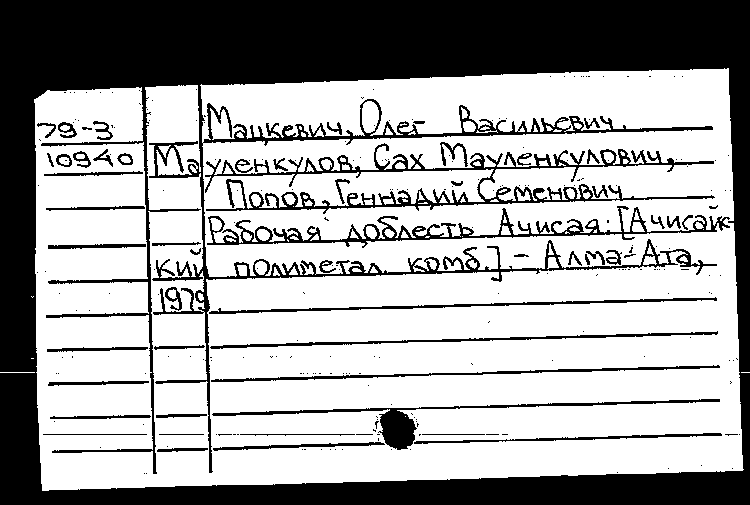 79-3
10940
Мацкевич, Олег Васильевич.
Мауленкулов, Сах Мауленкулович,
Попов, Геннадий Семенович.
Рабочая доблесть Ачисая: [Ачисайс-
кий полиметал. комб.].- Алма-Ата,
1979.